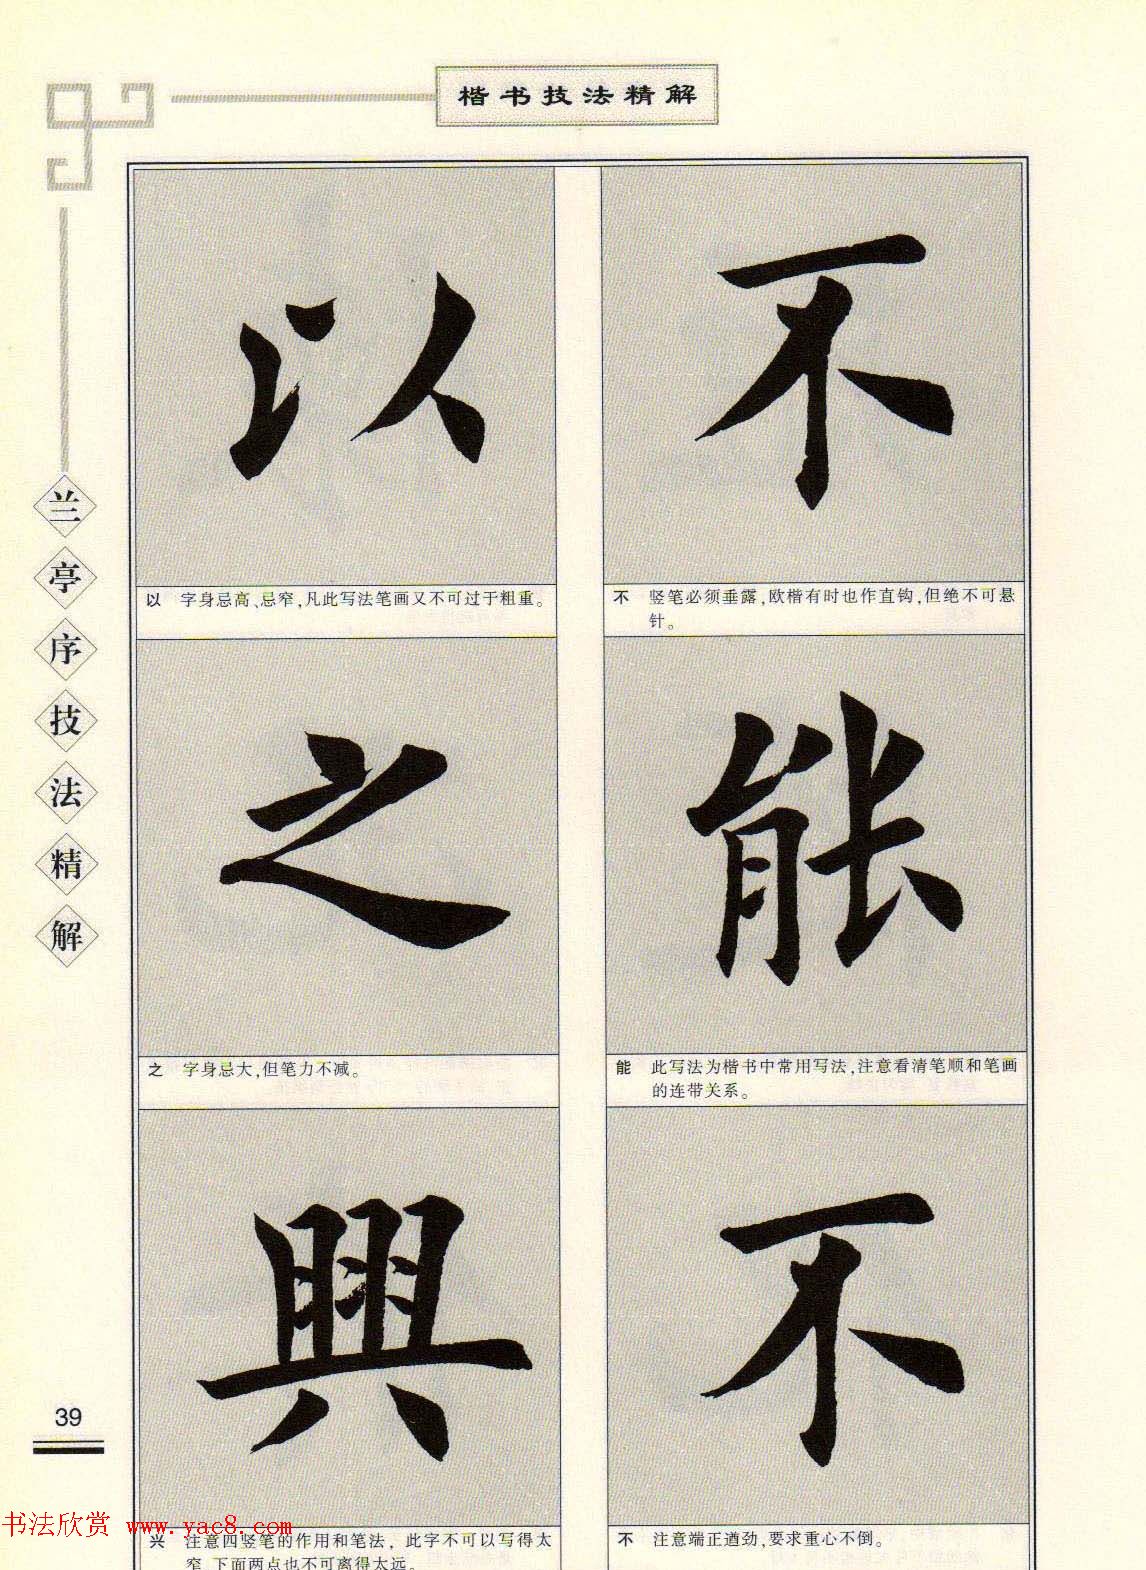 楷书技法精解
兰亭序技法精解
不
不 竖笔必须垂露,欧楷有时也作直钩,但绝不可悬
针。
能
能 此写法为楷书中常用写法,注意看清笔顺和笔画
的连带关系。
不
不 注意端正遒劲,要求重心不倒。
以
以 字身忌高、忌窄,凡此写法笔画又不可过于粗重。
之
之 字身忌大,但笔力不减。
興
兴 注意四竖笔的作用和笔法，此字不可以写得太
窄 下面两点也不可离得太远。
39
书法欣赏 www.yac8.com